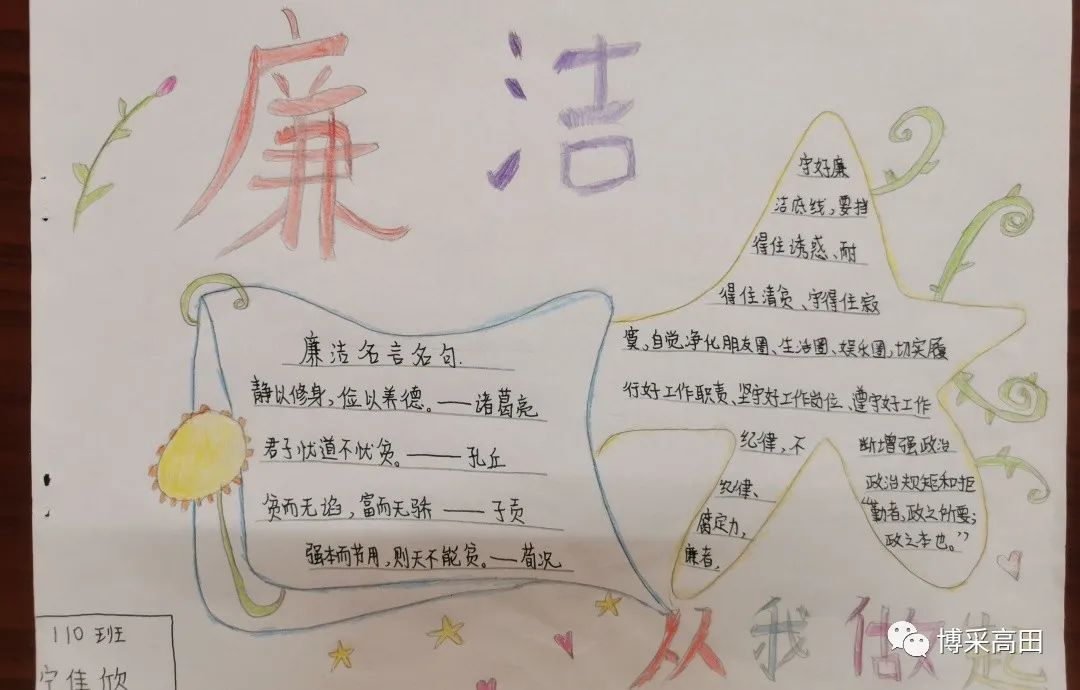 廉洁
廉洁名言名句.
静以修身,俭以养德。——诸葛亮
君子忧道不忧贫。——孔丘
贫而无谄,富而无骄——子贡
强本而节用,则天不能贫。——荀况
守好廉
洁底线,要挡
得住诱惑、耐
得住清贫、守得住寂
寞,自觉净化朋友圈、生活圈、娱乐圈,切实履
行好工作职责、坚守好工作岗位、遵守好工作
纪律,不 断增强政治
纪律、 政治规矩和拒
腐定力, “勤者,政之所要;
廉者, 政之本也。”
从我做起
110班
宁佳欣
博采高田